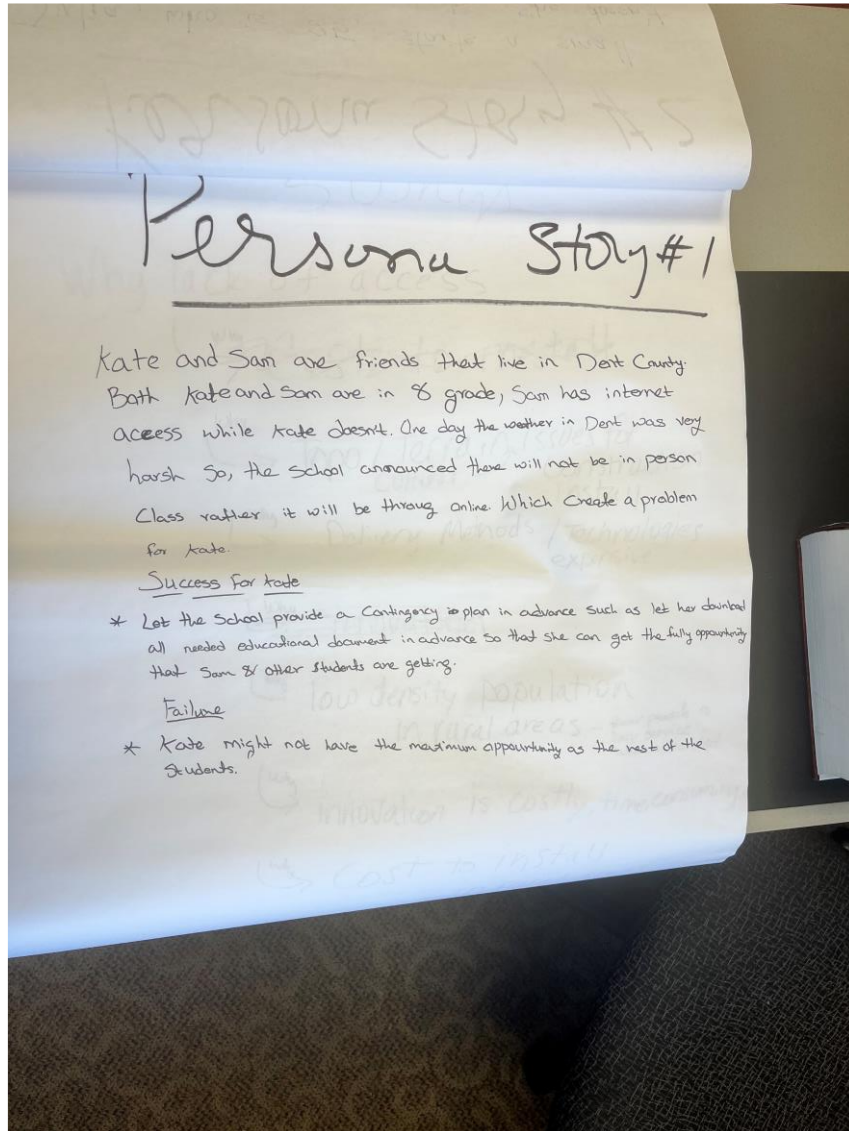 Persona Story #1
Kate and Sam are friends that live in Dent County.
Both Kate and Sam are in 8 grade, Sam has internet
access while Kate doesn't. One day the weather in Dent was very
harsh so, the school announced there will not be in person
Class rather it will be throug online. Which Create a problem
for Kate.
Success For Kate
* Let the School provide a Contingency plan in advance such as let her download
all needed educational document in advance so that she can get the fully oppourtunity
that Sam & other students are getting.
Failure
* Kate might not have the maximum oppourtunity as the rest of the
Students.
Why lack of access
low density population
in rural areas
innovation is costly, time consuming
cost to install